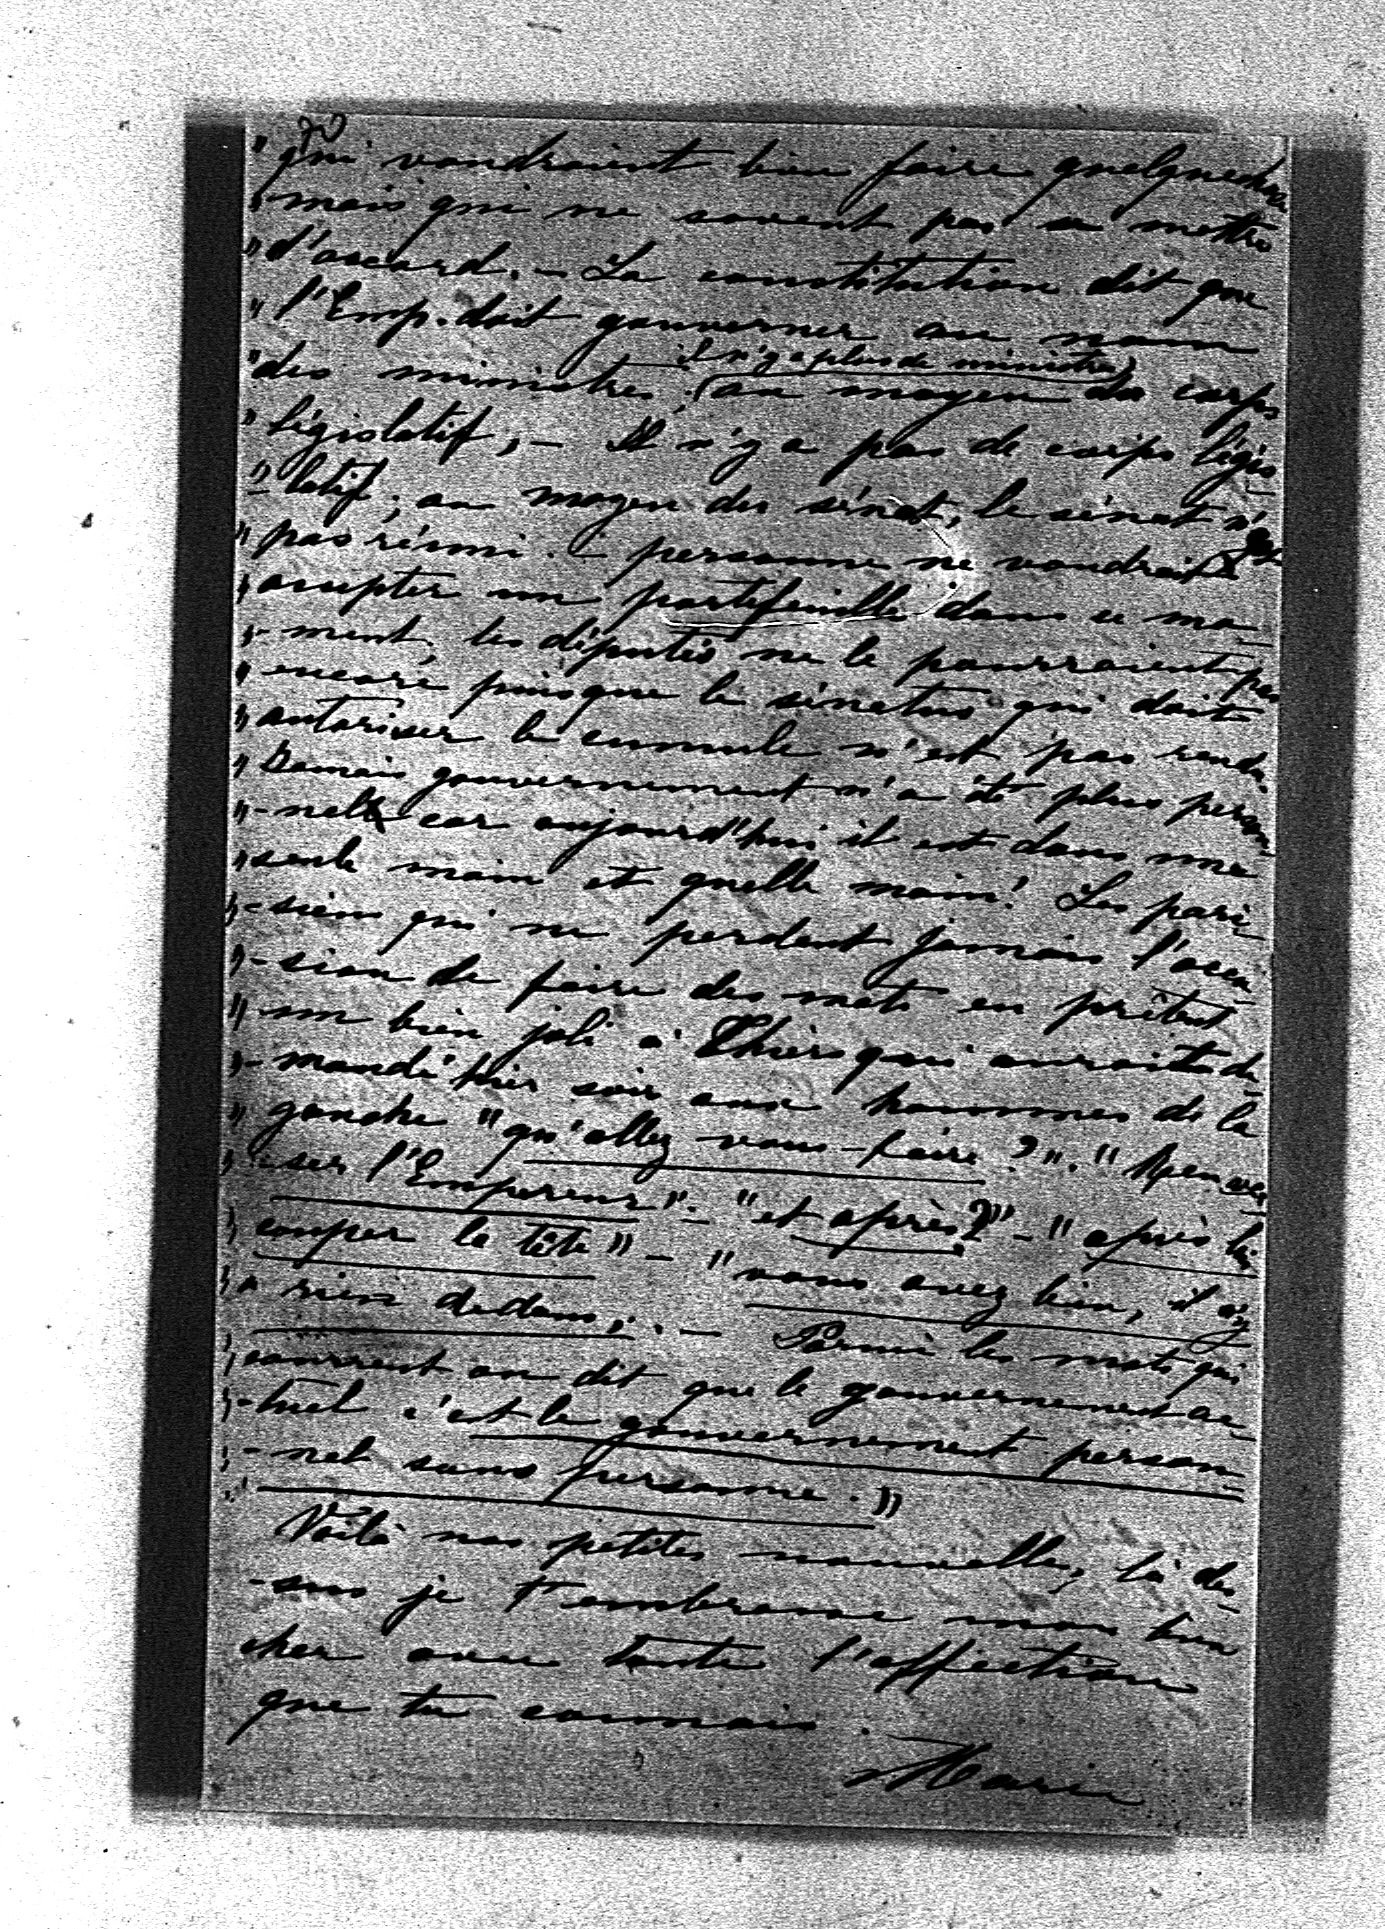 " qui voudraient bien faire quelque chose
" mais qui ne savent pas se mettre
" d'accord. - La constitution dit que
" l'Emp. doit gouverner au nom
il n'y a plus de ministres)
" des ministres, (au moyen du corps
" législatif, - Il n'y a pas de corps légis
"-latif; au moyen du sénat, le sénat n'est
" pas réuni. personne ne voudrait
" accepter un portefeuille dans ce mo-
"-ment, les députés ne le pourraient pas
" encore puisque le sénatus qui doit
" autoriser le cumule n'est pas rendu.
" Jamais gouvernement n'a été plus person-
"-nel car aujourd'hui il est dans une
" seule main et quelle main! Les pari-
"-siens qui ne perdent jamais l'occa-
"-sion de faire des mots en prêtent
" un bien joli à Thiers qui aurait de-
"-mandé hier soir aux hommes de la
" gauche "qu'allez vous faire?". "Renver-
"-ser l'Empereur". - "et après?" - "après lui
" couper la tête" - "vous avez bien, il n'y
" a rien dedans". - Parmi les mots qui
" courrent on dit que le gouvernement ac-
"-tuel c'est le gouvernement person-
"-nel sans personne."
Voilà nos petites nouvelles, là des-
-sus je t'embrasse mon bon
cher avec toute l'affection
que tu connais.
Marie